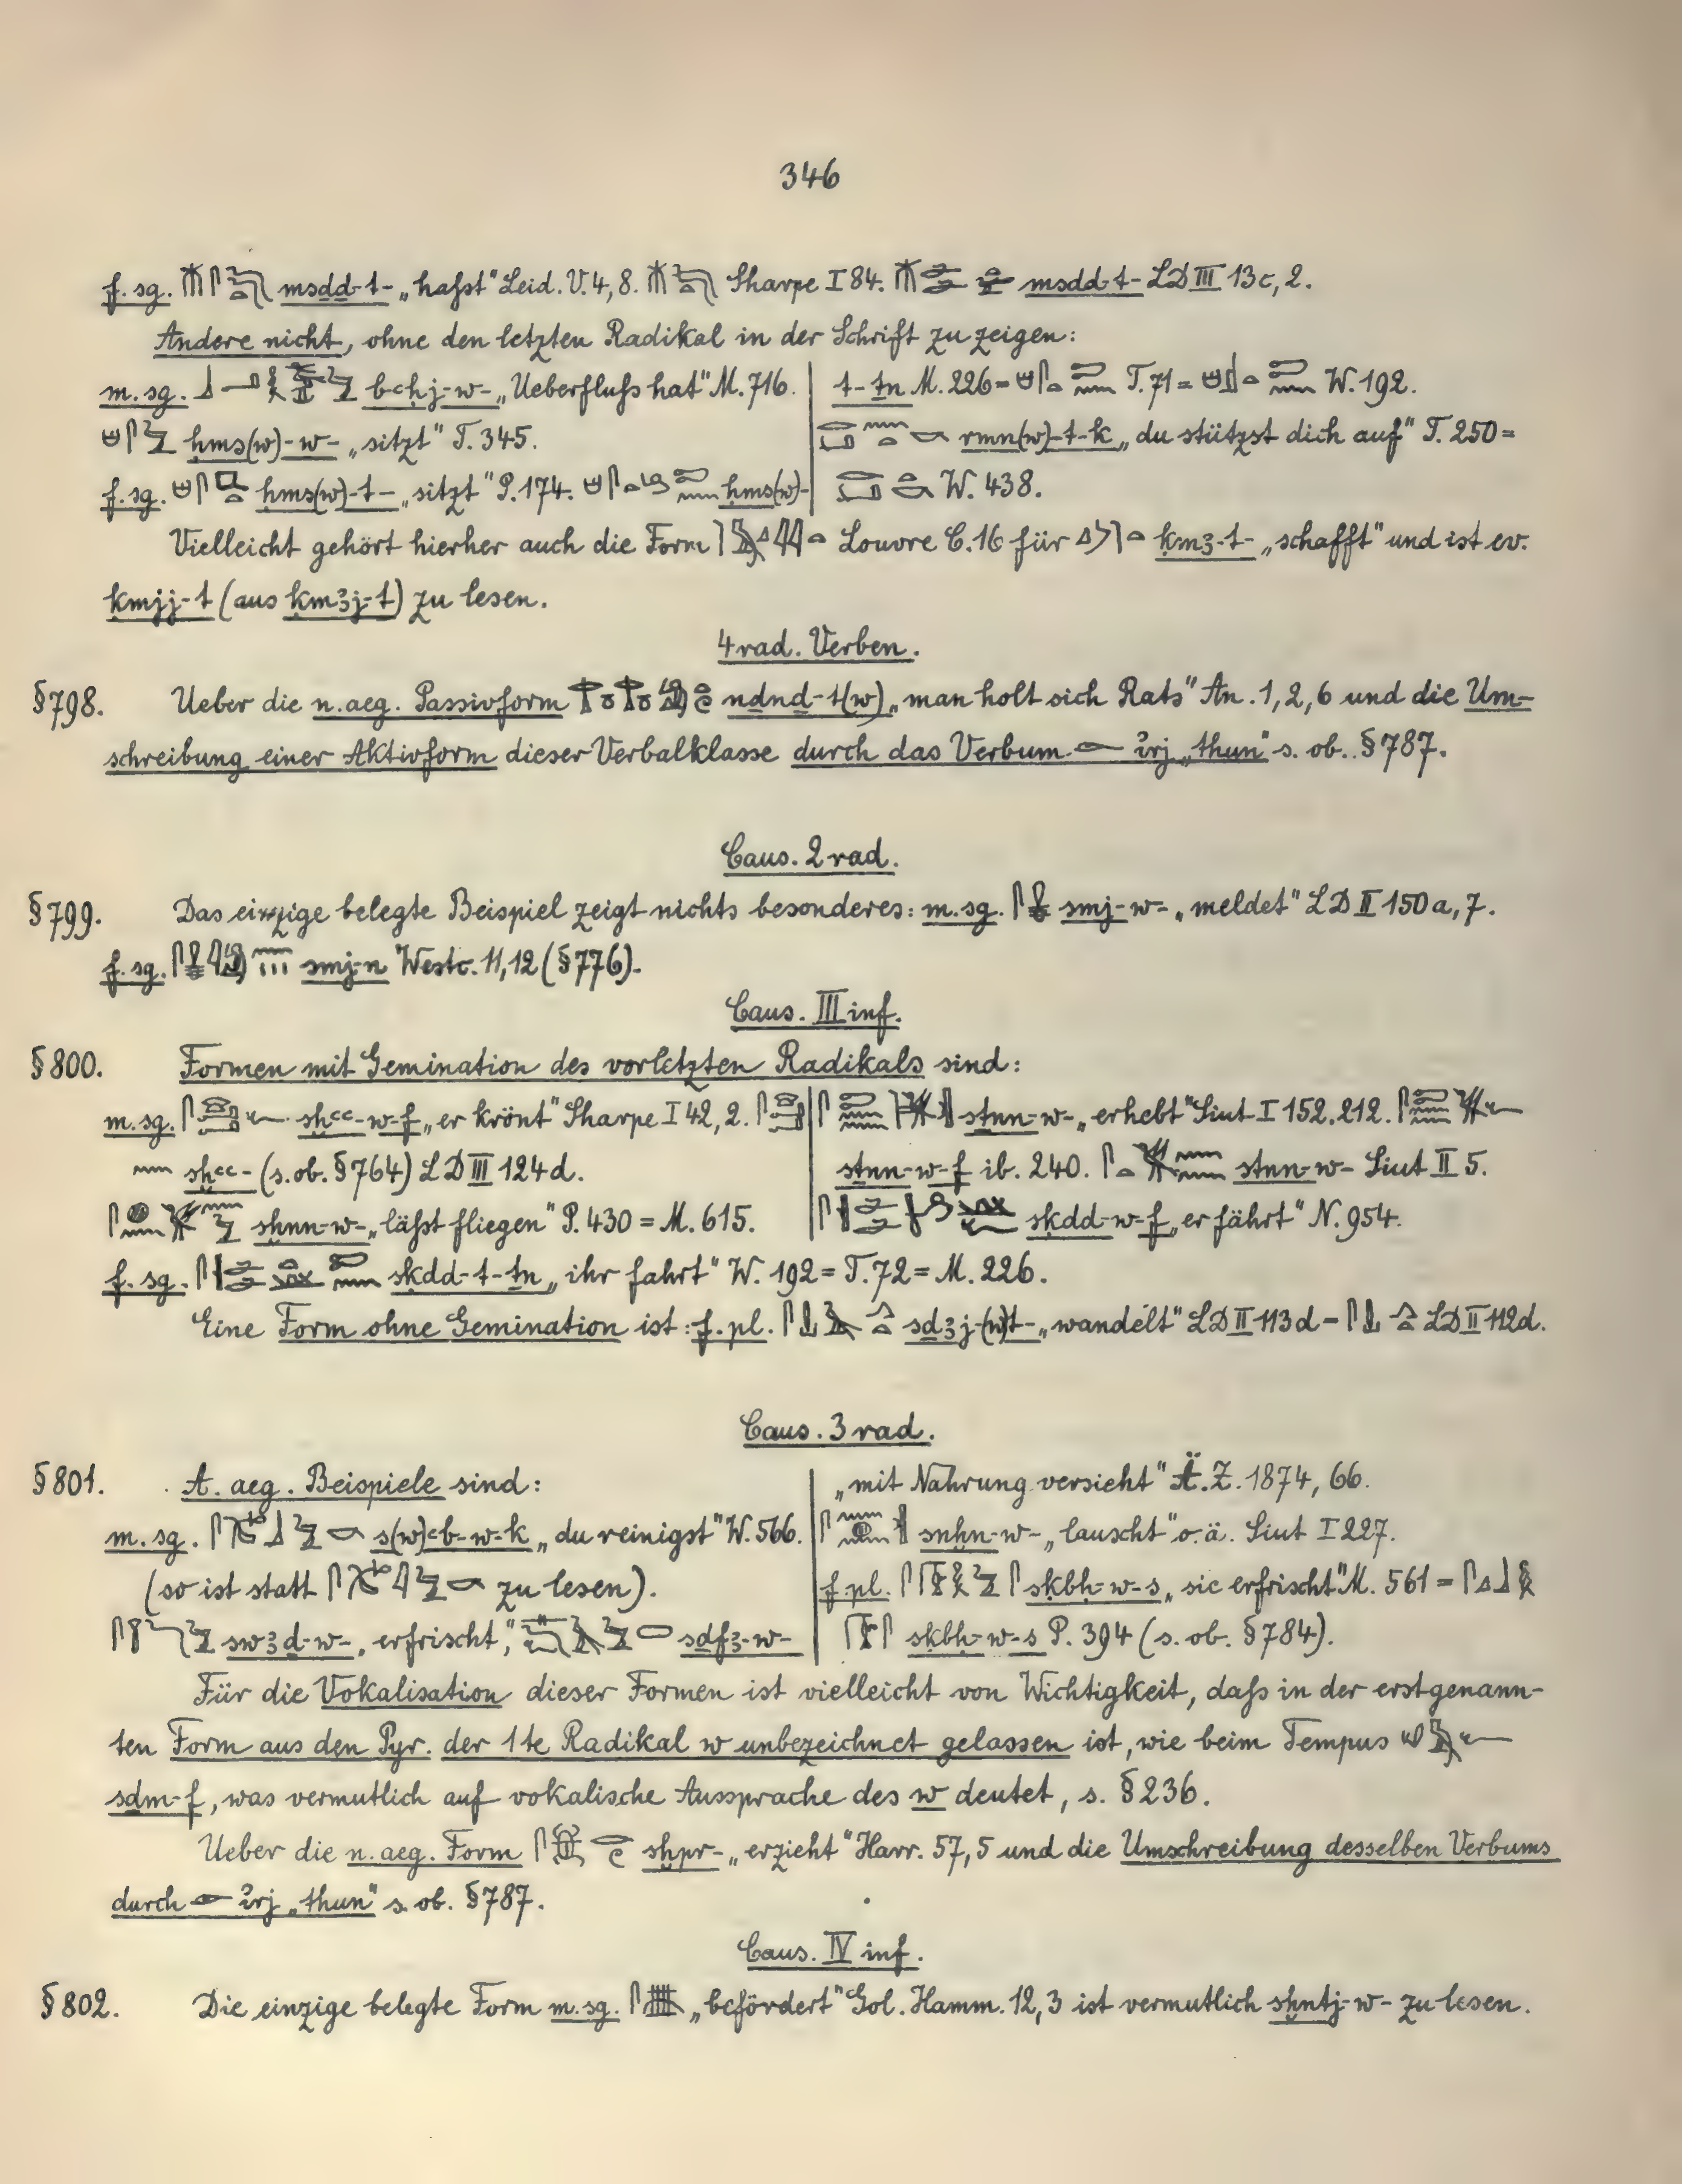 346
f. sg. msdd-t- „haſst" Leid. V. 4, 8. Sharpe I 84. msdd-t- LD III 13c, 2.
Andere nicht, ohne den letzten Radikal in der Schrift zu zeigen:
m. sg. bꜥḥj-w- „Ueberfluſs hat" M. 716.
ḥms(w)-w- „sitzt" T. 345.
f. sg. ḥms(w)-t- „sitzt" P. 174. ḥms(w)-
t-ṯn M. 226 = T. 71 = W. 192.
rmn(w)-t-k „du stützst dich auf" T. 250 =
W. 438.
Vielleicht gehört hierher auch die Form Louvre C. 16 für ḳmꜣ-t- „schafft" und ist ev.
ḳmjj-t (aus ḳmꜣj-t) zu lesen.
4 rad. Verben.
§ 798. Ueber die n. aeg. Passivform nḏnḏ-t(w) „man holt sich Rats" An. 1, 2, 6 und die Um-
schreibung einer Aktivform dieser Verbalklasse durch das Verbum ꞽrj „thun" s. ob. § 787.
Caus. 2 rad.
§ 799. Das einzige belegte Beispiel zeigt nichts besonderes: m. sg. smj-w- „meldet" LD II 150 a, 7.
f. sg. smj-n Westc. 11, 12 (§ 776).
Caus. III inf.
§ 800. Formen mit Gemination des vorletzten Radikals sind:
m. sg. sḫꜥꜥ-w-f „er krönt" Sharpe I 42, 2.
sḫꜥꜥ- (s. ob. § 764) LD III 124 d.
sḫnn-w- „läſst fliegen" P. 430 = M. 615.
sṯnn-w- „erhebt" Siut I 152. 212.
sṯnn-w-f ib. 240. stnn-w- Siut II 5.
sḳdd-w-f „er fährt" N. 954.
f. sg. sḳdd-t-ṯn „ihr fahrt" W. 192 = T. 72 = M. 226.
Eine Form ohne Gemination ist: f. pl. sḏꜣj-(w)t- „wandelt" LD II 113 d = LD II 112 d.
Caus. 3 rad.
§ 801. A. aeg. Beispiele sind:
m. sg. s(w)ꜥb-w-k „du reinigst" W. 566.
(so ist statt zu lesen).
swꜣḏ-w- „erfrischt", sḏfꜣ-w-
„mit Nahrung versieht" Ä. Z. 1874, 66.
snḫn-w- „lauscht" o. ä. Siut I 227.
f. pl. sḳbḥ-w-s „sie erfrischt" M. 561 =
sḳbḥ-w-s P. 394 (s. ob. § 784).
Für die Vokalisation dieser Formen ist vielleicht von Wichtigkeit, daſs in der erstgenann-
ten Form aus den Pyr. der 1te Radikal w unbezeichnet gelassen ist, wie beim Tempus
sḏm-f, was vermutlich auf vokalische Aussprache des w deutet, s. § 236.
Ueber die n. aeg. Form sḫpr- „erzieht" Harr. 57, 5 und die Umschreibung desselben Verbums
durch ꞽrj „thun" s. ob. § 787.
Caus. IV inf.
§ 802. Die einzige belegte Form m. sg. „befördert" Gol. Hamm. 12, 3 ist vermutlich sḫntj-w- zu lesen.